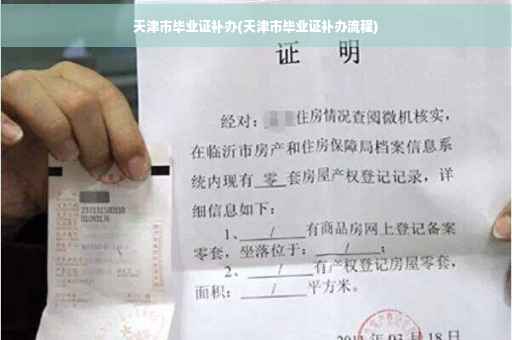 天津市毕业证补办(天津市毕业证补办流程)
证 明
经对：住房情况查阅微机核实，
在临沂市房产和住房保障局档案信息系
统内现有 零 套房屋产权登记记录，详
细信息如下：
1、 / 有商品房网上登记备案
零套，坐落位于： / ；
2、 / 有产权登记房屋零套，
面积： / 平方米。